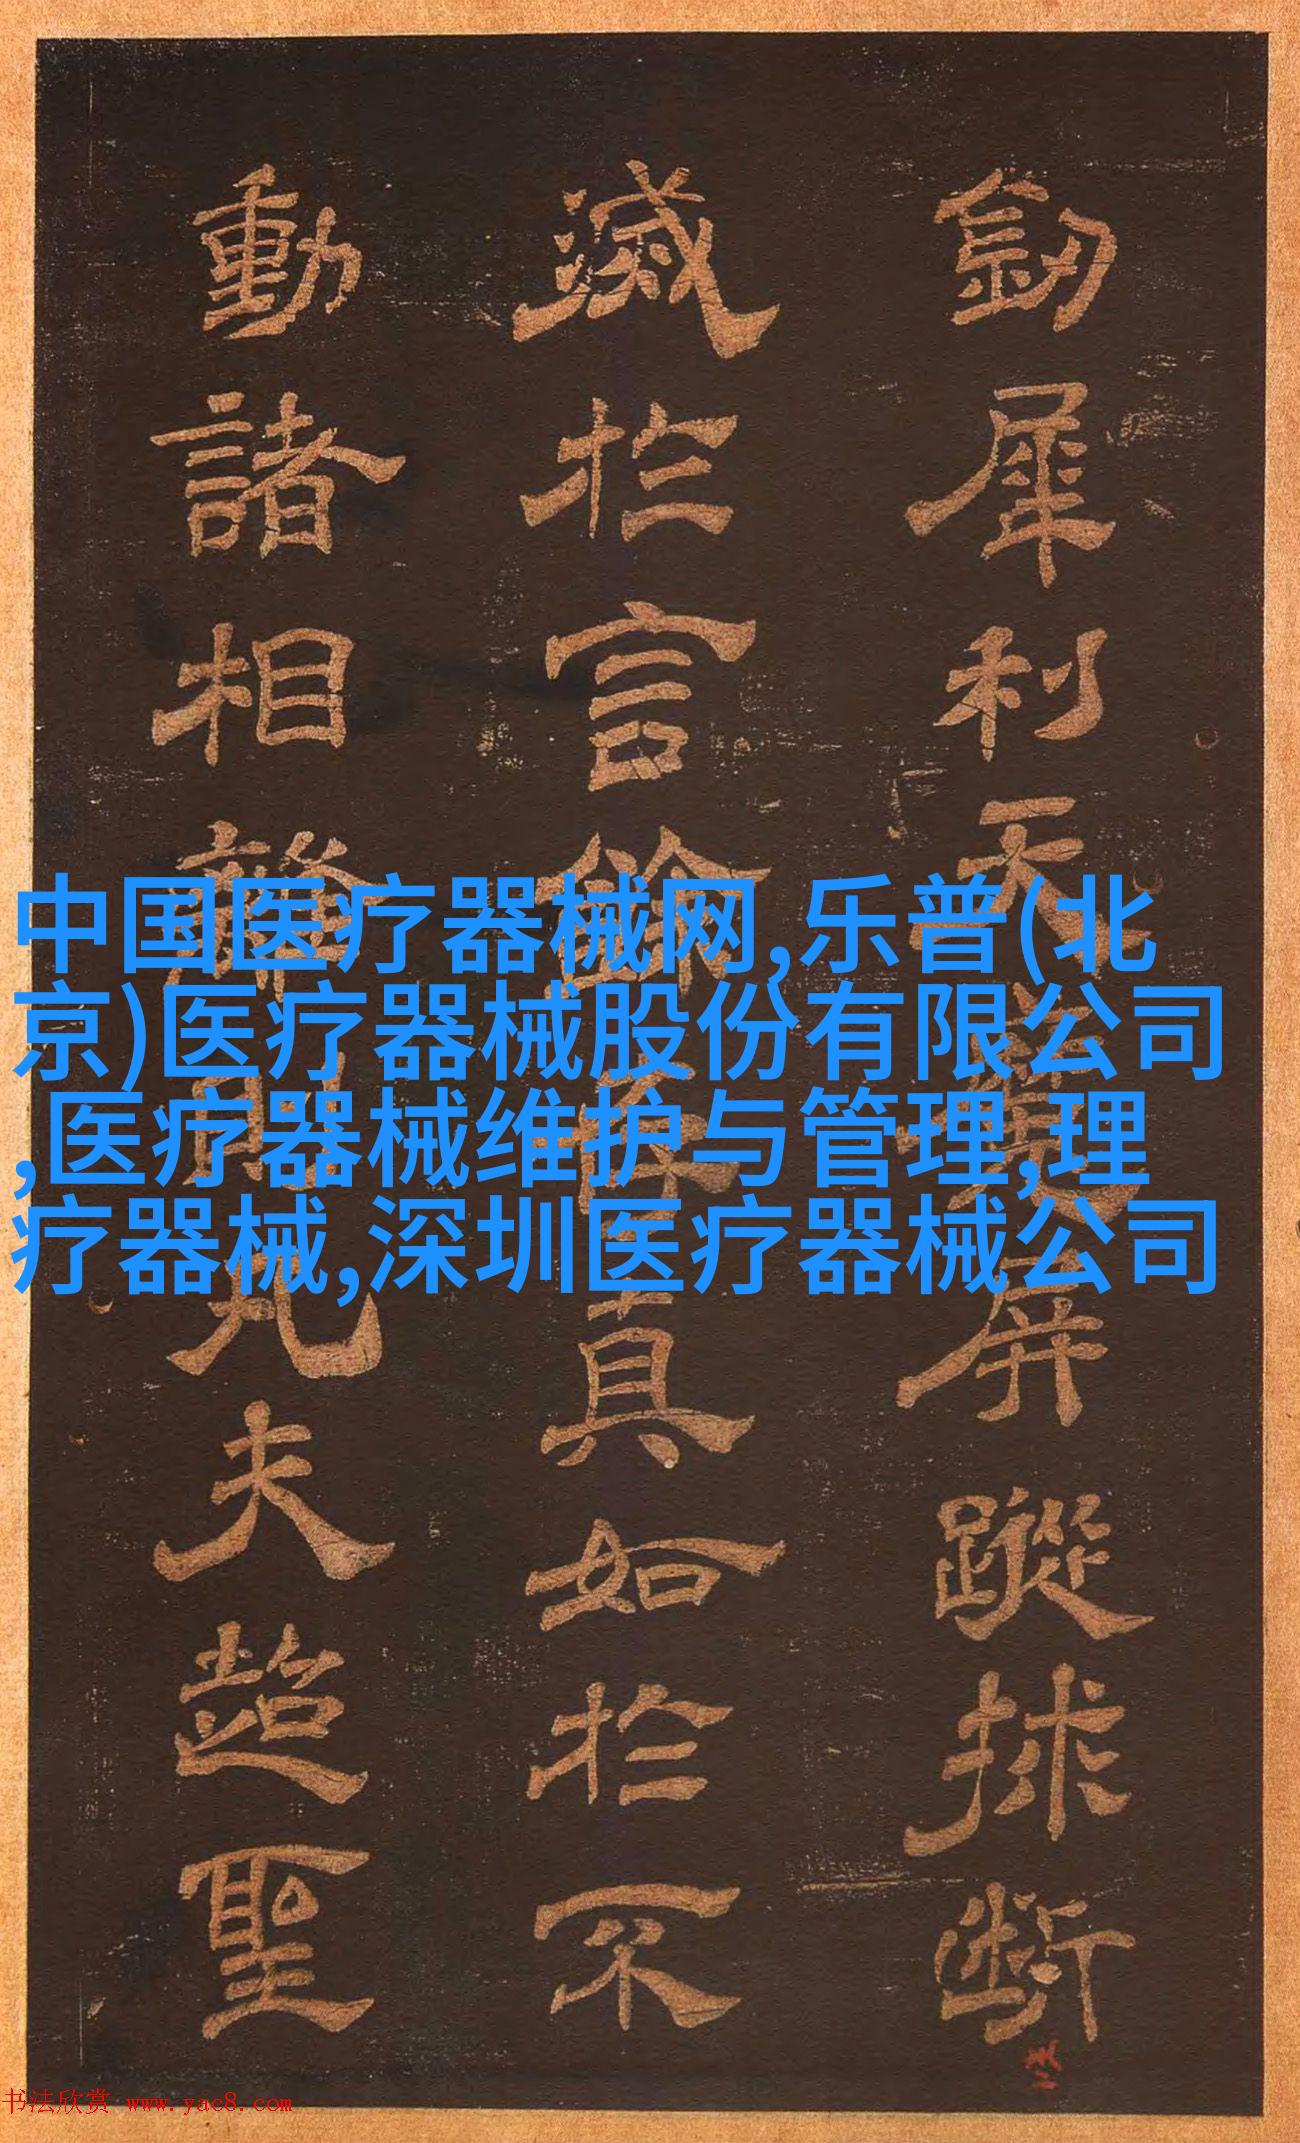 釰犀利天
屏蹤排斷
滅於言
真如於不
動諸相
凡夫趂聖
中国医疗器械网,乐普(北
京)医疗器械股份有限公司
,医疗器械维护与管理,理
疗器械,深圳医疗器械公司
书法欣赏 www.yac8.com